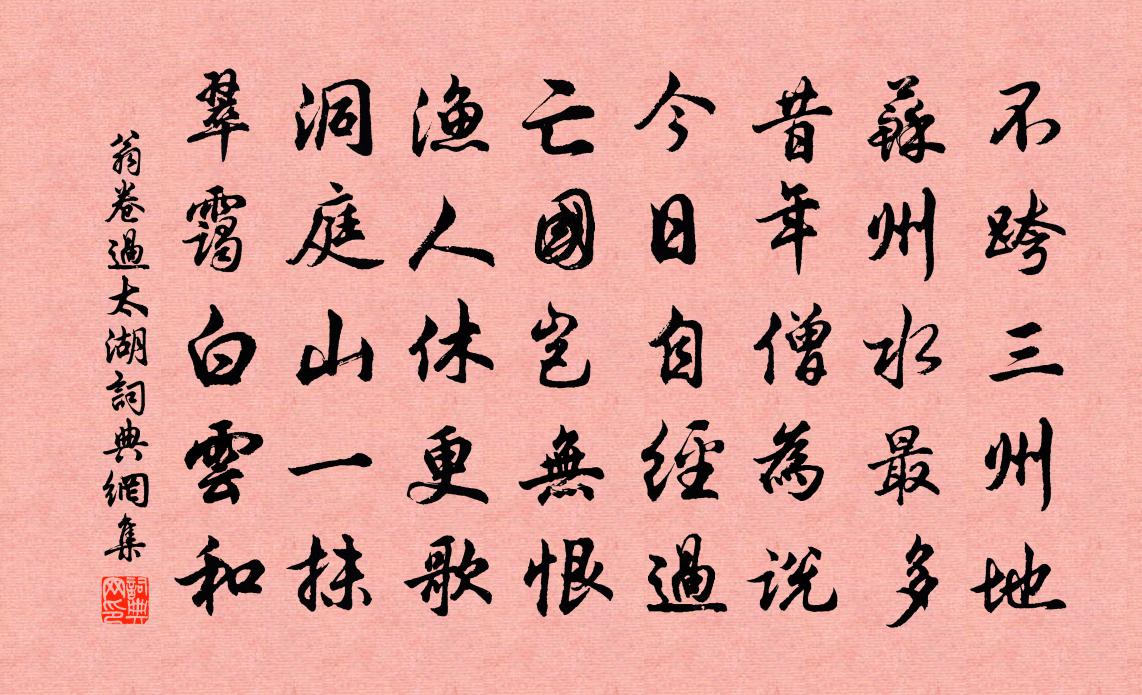 不跨三州地
蘇州水最多
昔年僧為說
今日自經過
亡國豈無恨
漁人休更歌
洞庭山一抹
翠靄白雲和
翁卷過太湖詞典網集
詞典網印